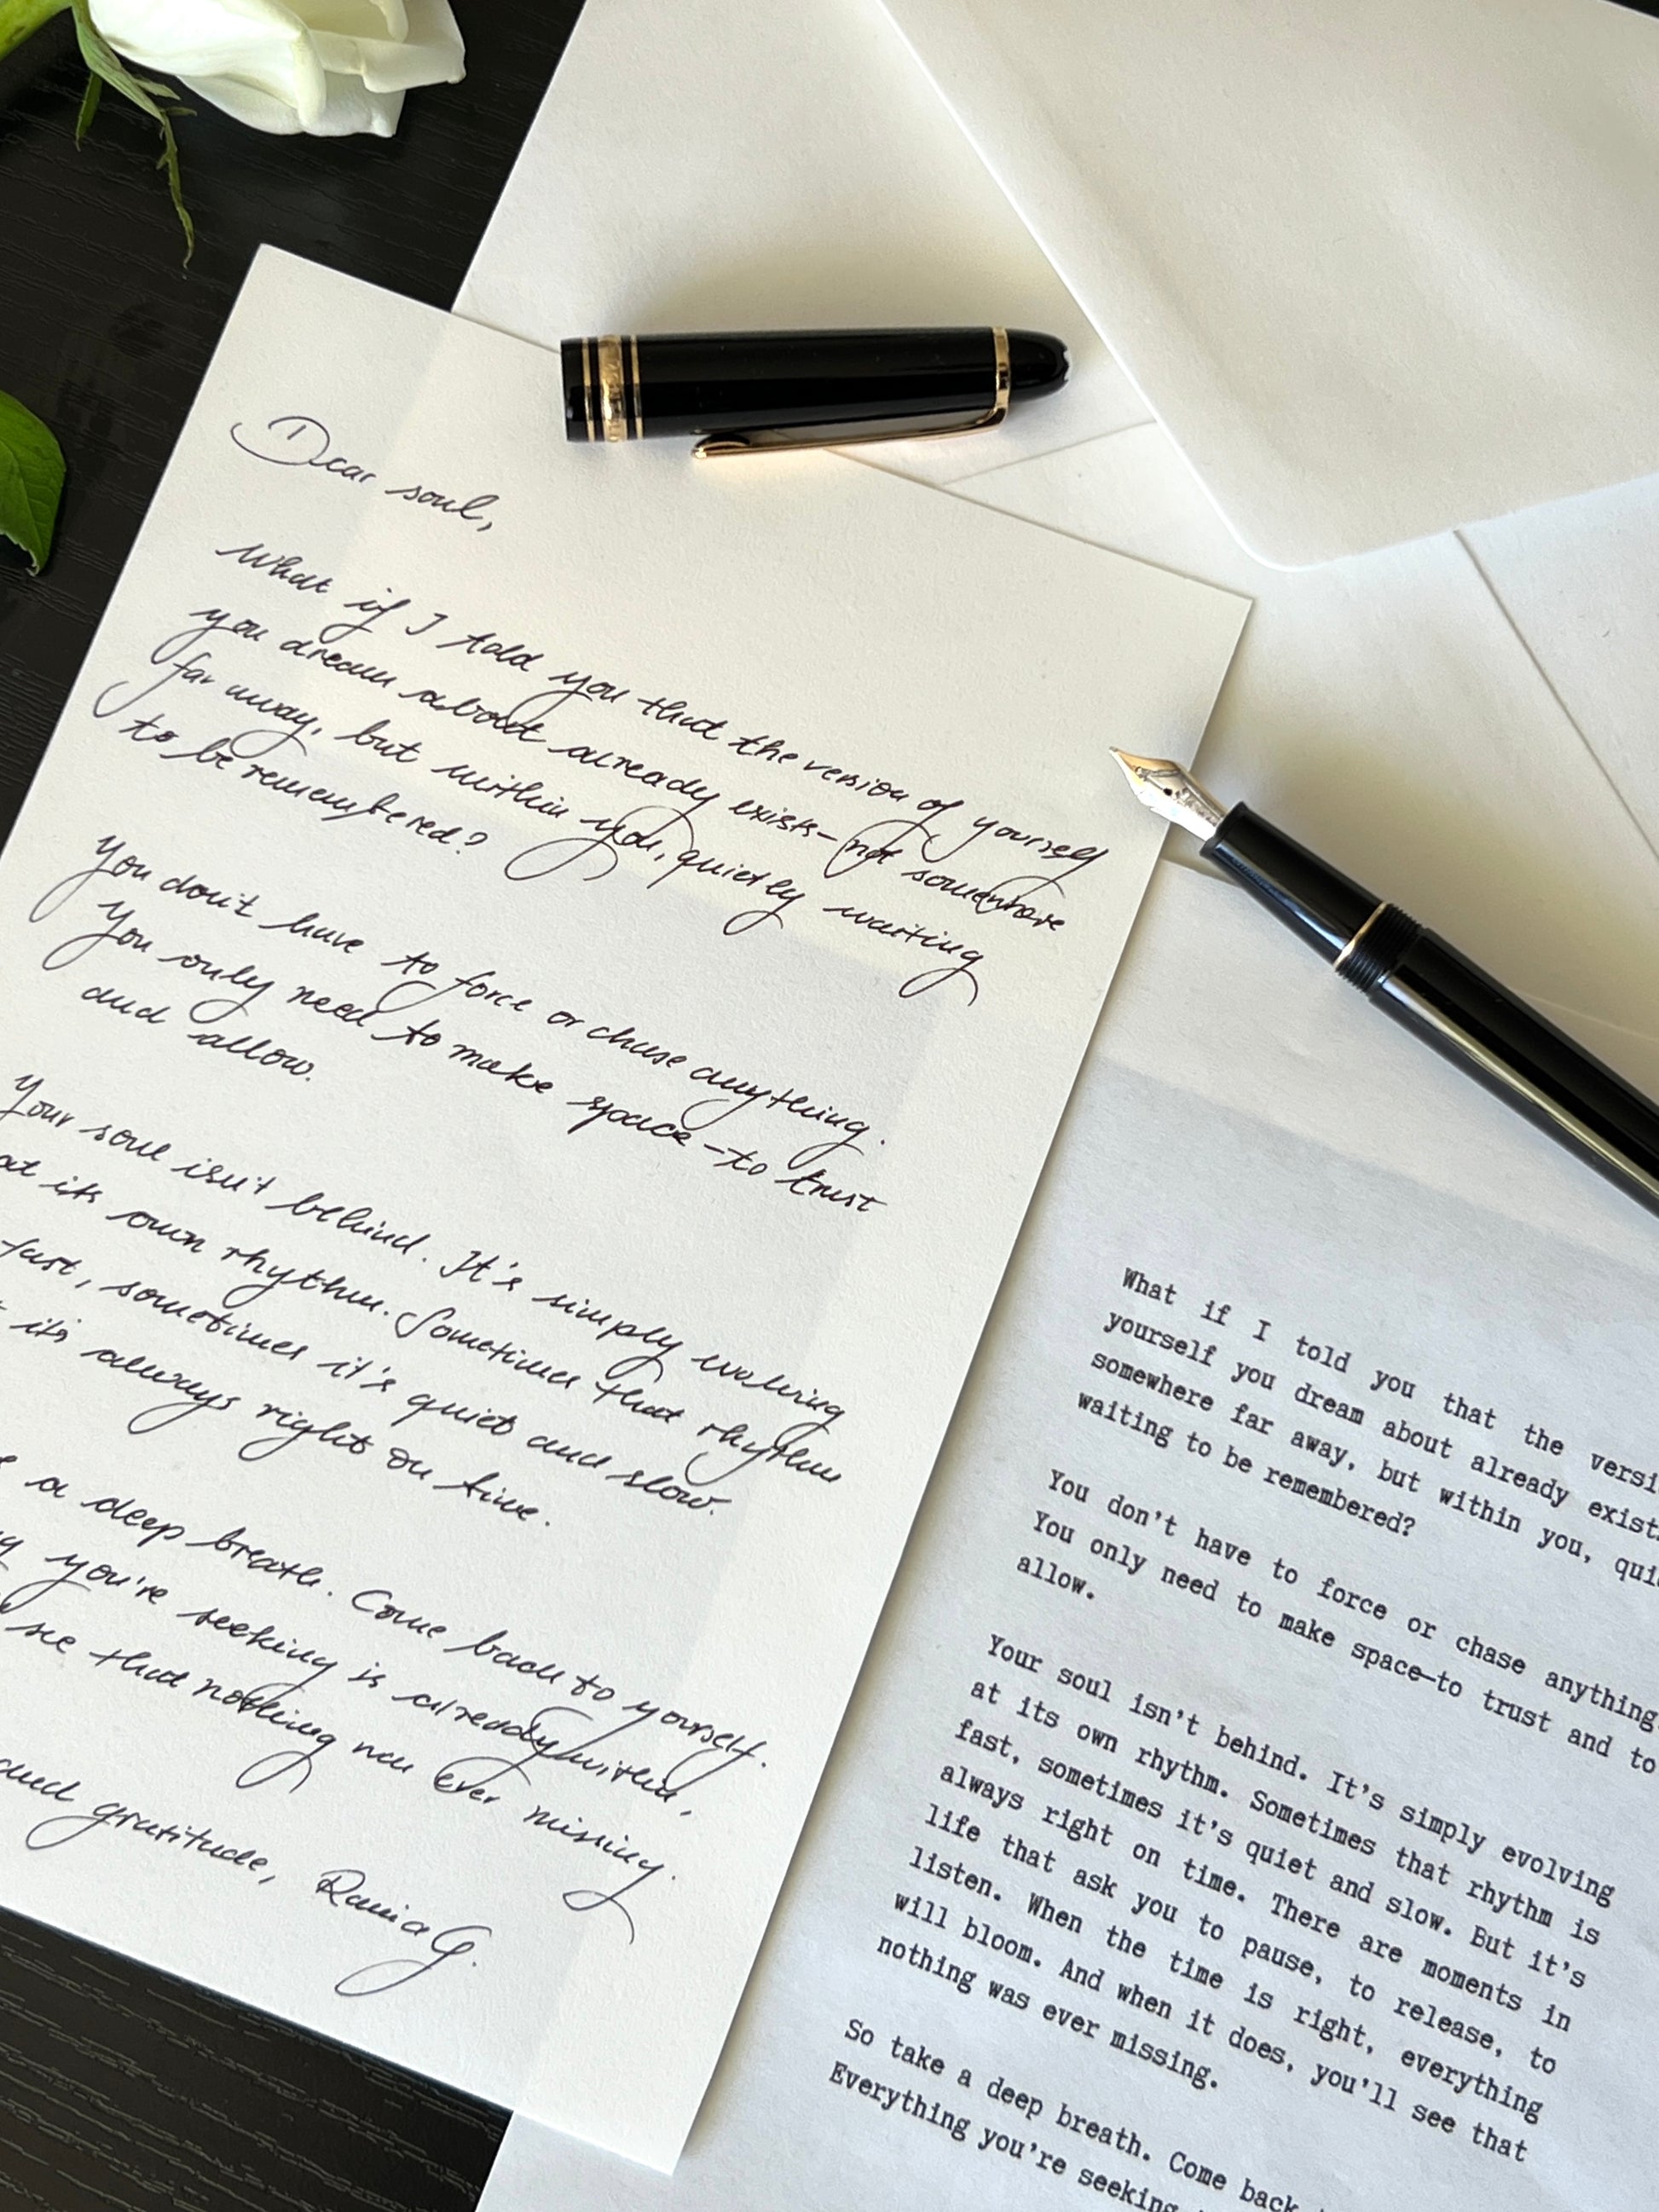 Dear soul,
What if I told you that the version of yourself
you dream about already exists—not somewhere
far away, but within you, quietly waiting
to be remembered?
You don't have to force or chase anything.
You only need to make space—to trust
and allow.
Your soul isn't behind. It's simply evolving
at its own rhythm. Sometimes that rhythm
fast, sometimes it's quiet and slow.
it's always right on time.
a deep breath. Come back to yourself.
you're seeking is already within,
see that nothing was ever missing.
and gratitude, Rania G.
What if I told you that the versi
yourself you dream about already exist
somewhere far away, but within you, qui
waiting to be remembered?
You don't have to force or chase anything
You only need to make space—to trust and to
allow.
Your soul isn't behind. It's simply evolving
at its own rhythm. Sometimes that rhythm is
fast, sometimes it's quiet and slow. But it's
always right on time. There are moments in
life that ask you to pause, to release, to
listen. When the time is right, everything
will bloom. And when it does, you'll see that
nothing was ever missing.
So take a deep breath. Come back
Everything you're seeking